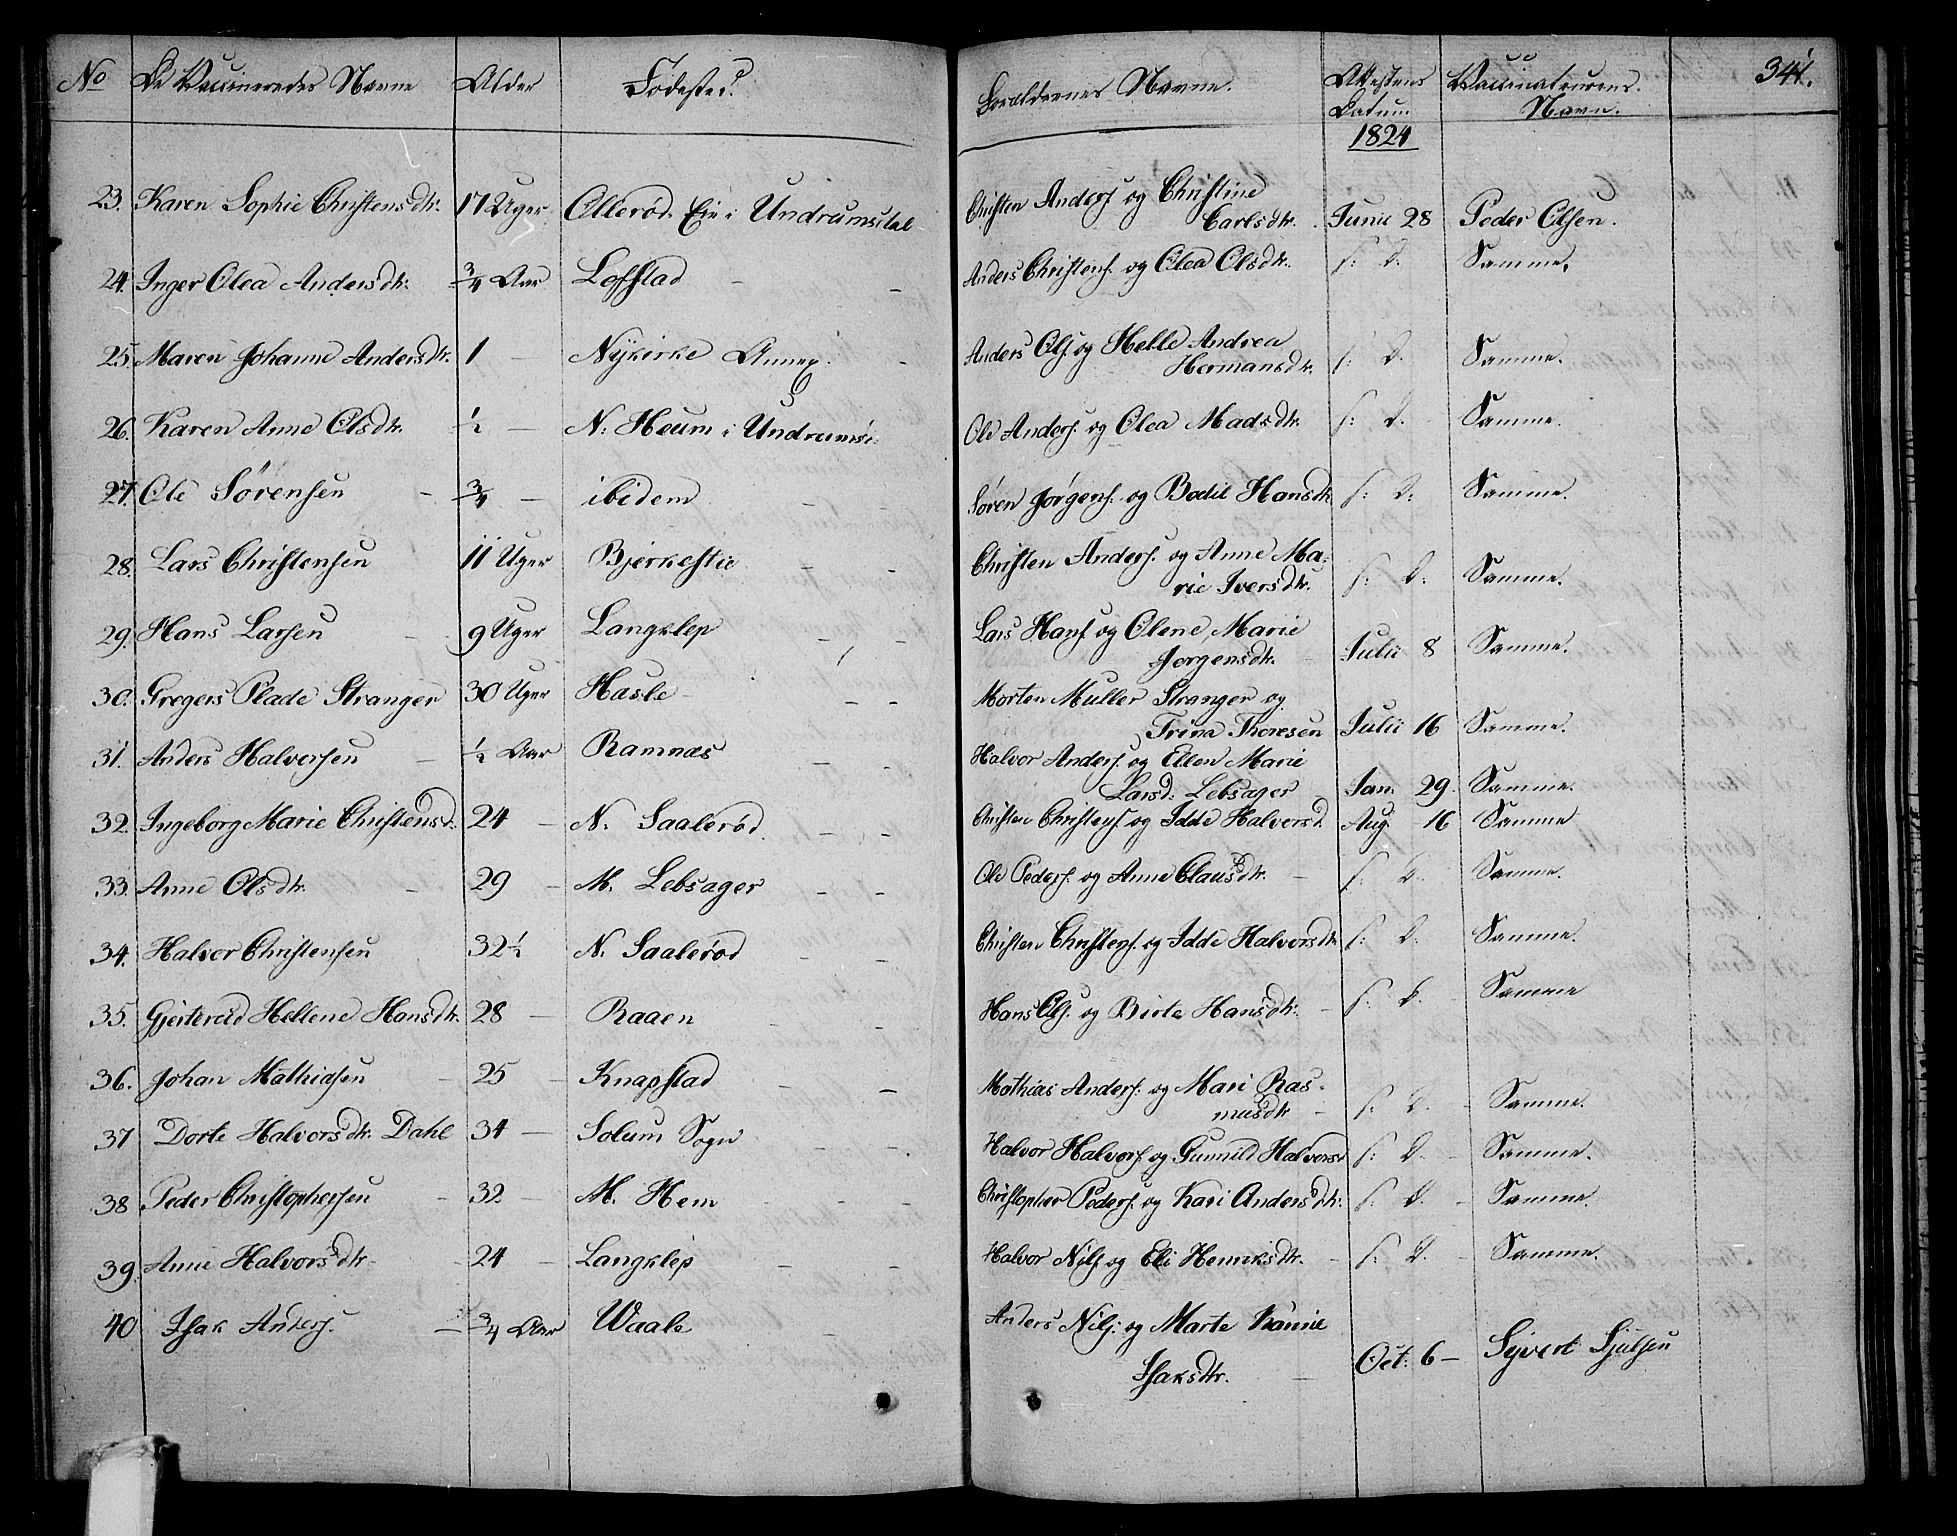 No De Vaccineredes Navne Alder Fødested. Foreldrenes Navne. Attestens Datum Vaccinateurens Navn. 341.
1824
23. Karen Sophie Christensdtr. 17 Uger Ollerød Eie i Undrumsdal Christen Anders. og Christine
Carlsdtr. Junii 28 Peder Olsen.
24. Inger Olea Andersdtr. 3/4 Aar Lofstad - - Anders Christens. og Olea Olsdtr. s: D. Samme.
25. Maren Johanne Andersdtr. 1 - Nykirke Annex. - Anders Ols. og Helle Andrea
Hermansdtr. s: D. Samme.
26. Karen Anne Olsdtr. 1/2 - N. Heum i Undrumsd. Ole Anders. og Olea Madsdtr. s: D. Samme.
27. Ole Sørensen - 3/4 - ibidem - Søren Jørgens. og Bodil Hansdtr s: D: Samme.
28. Lars Christensen 11 Uger Bjerkestie - - Christen Anders. og Anne Ma-
rie Iversdtr. s: D: Samme.
29. Hans Larsen - 9 Uger Langklep - - Lars Hans. og Olene Marie
Jørgensdtr. Julii 8 Samme.
30. Gregers Plade Stranger 30 Uger Hasle - - - Morten Muller Stranger og
Trina Thoresen Julii 16 Samme.
31. Anders Halvorsen - 1/2 Aar Ramnæs - - Halvor Anders. og Ellen Marie
Larsd: Lebsager Jan. 29. Samme.
32. Ingeborg Marie Christensd. 24 - N. Saalerød - - Christen Christens. og Idde Halversd. Aug 16 Samme
33. Anne Olsdtr. - 29 - M. Lebsager - - Ole Peders. og Anne Clausdtr. - s: D. Samme.
34. Halvor Christensen 32 1/2 N. Saalerød - - Christen Christens. og Idde Halvorsdtr s: D. Samme.
35. Gjertrud Hellene Hansdtr. 28 - Raaen - - Hans Ols. og Birte Hansdtr. - s: D. - Samme
36. Johan Mathiasen - 25 - Knapstad - - Mathias Anders. og Mari Ras-
musdtr - s: D. - Samme.
37 Dorte Halvorsdtr. Dahl 34 - Solum Sogn - - Halvor Halvors. og Gunnild Halvorsd s: D. - Samme.
38 Peder Christophersen - 32 - M. Hem - - Christopher Peders. og Kari Andersdtr. s: D. - Samme.
39. Anne Halvorsdtr. - 24 - Langklep - - Halvor Nils. og Eli Henriksdtr. - s: D. - Samme.
40 Isak Anders. - 3/4 Aar Waale - Anders Nils. og Marte Karine
Isaksdtr. - Oct: 6 - Syvert Sjulsen